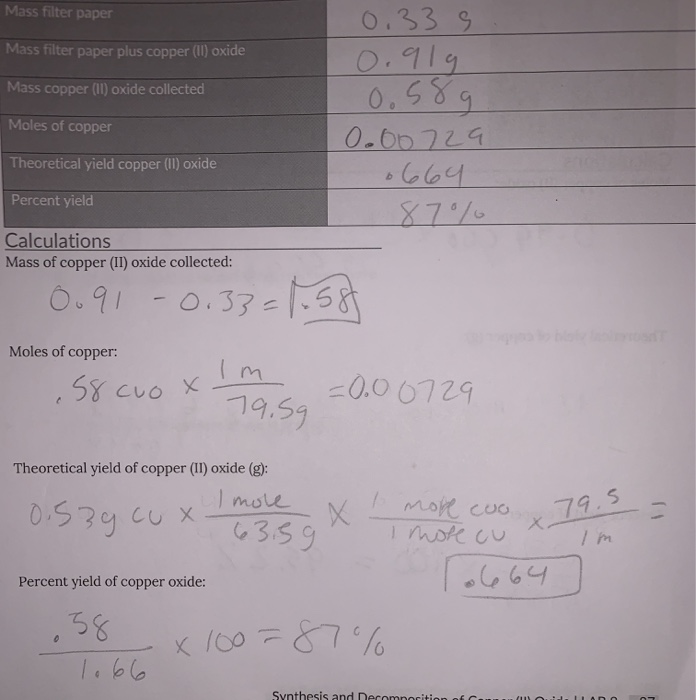 Mass filter paper 0.33 g
Mass filter paper plus copper (II) oxide 0.91g
Mass copper (II) oxide collected 0.58g
Moles of copper 0.00729
Theoretical yield copper (II) oxide .664
Percent yield 87%
Calculations
Mass of copper (II) oxide collected:
0.91 - 0.33 = .58
Moles of copper:
.58 cuo x 1 m / 79.5g = 0.00729
Theoretical yield of copper (II) oxide (g):
0.53g cu x 1 mole / 63.5g x 1 mole cuo / 1 mole cu x 79.5 / 1 m =
.664
Percent yield of copper oxide:
.58 / 1.66 x 100 = 87%
Synthesis and Decomposition of Copper (II) Oxide